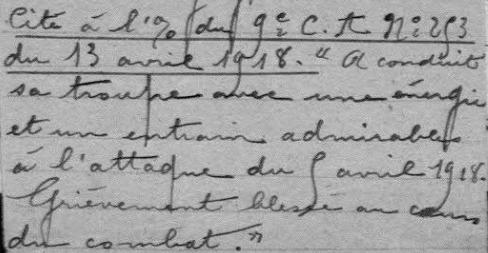 Cité à l'% du 9e C.A N° 253
du 13 avril 1918. " A conduit
sa troupe avec une énergie
et un entrain admirables
à l'attaque du 5 avril 1918.
Grièvement blessé au cours
du combat."